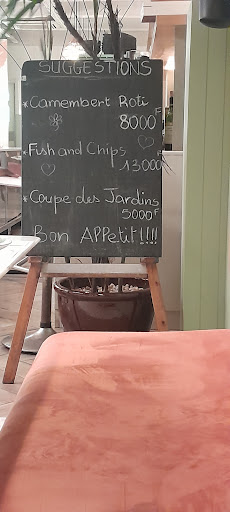 SUGGESTIONS
*Camembert Roti
8000F
*Fish and Chips
13000
*Coupe des Jardins
5000F
Bon APPetit!!!!